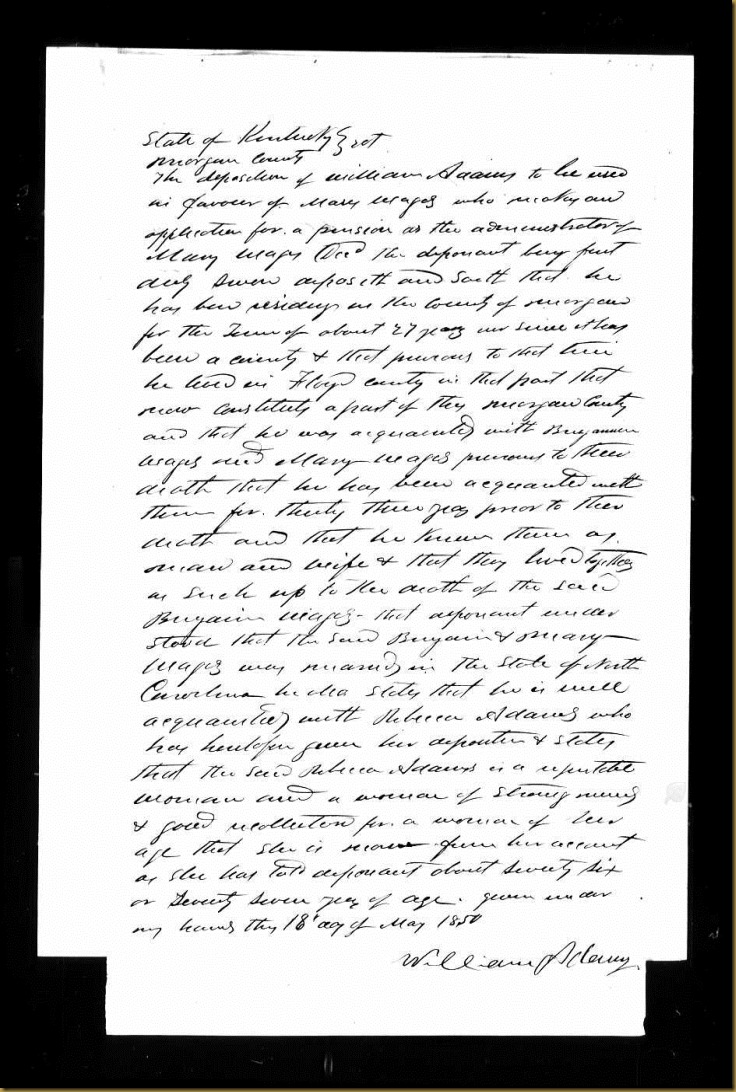 State of Kentucky } sct
Morgan County
The deposition of William Adams to be used
in favour of Mary Wages who makes an
application for a pension as the administrator of
Mary Wages Decd the deponant being first
duly sworn deposeth and Saith that he
has been residing in the County of Morgan
for the Term of about 27 years ever since it has
been a county & that previous to that time
he lived in Floyd county in that part that
now constitutes a part of this Morgan County
and that he was acquainted with Benjamin
Wages and Mary Wages previous to their
death that he has been acquainted with
them for thirty three years prior to their
death and that he knew them as
man and wife & that they lived together
as such up to the death of the said
Benjamin Wages - that deponant under
stood that the said Benjamin & Mary
Wages was married in the State of North
Carolina he also states that he is well
acquainted with Rebecca Adams who
has heretofore given her deposition & states
that the said Rebecca Adams is a reputable
woman and a woman of strong mind
& good recollection for a woman of her
age that she is now from her account
as she has told deponant about seventy six
or seventy seven years of age. given under
my hand this 18 day of May 1850
William Adams